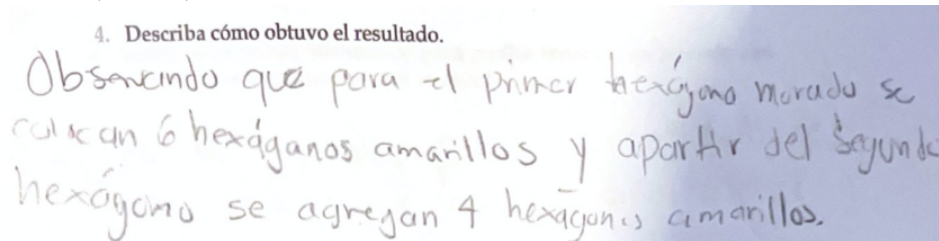 4. Describa cómo obtuvo el resultado.
Observando que para el primer hexágono morado se
colocan 6 hexáganos amarillos y apartir del segundo
hexágono se agregan 4 hexágonos amarillos.